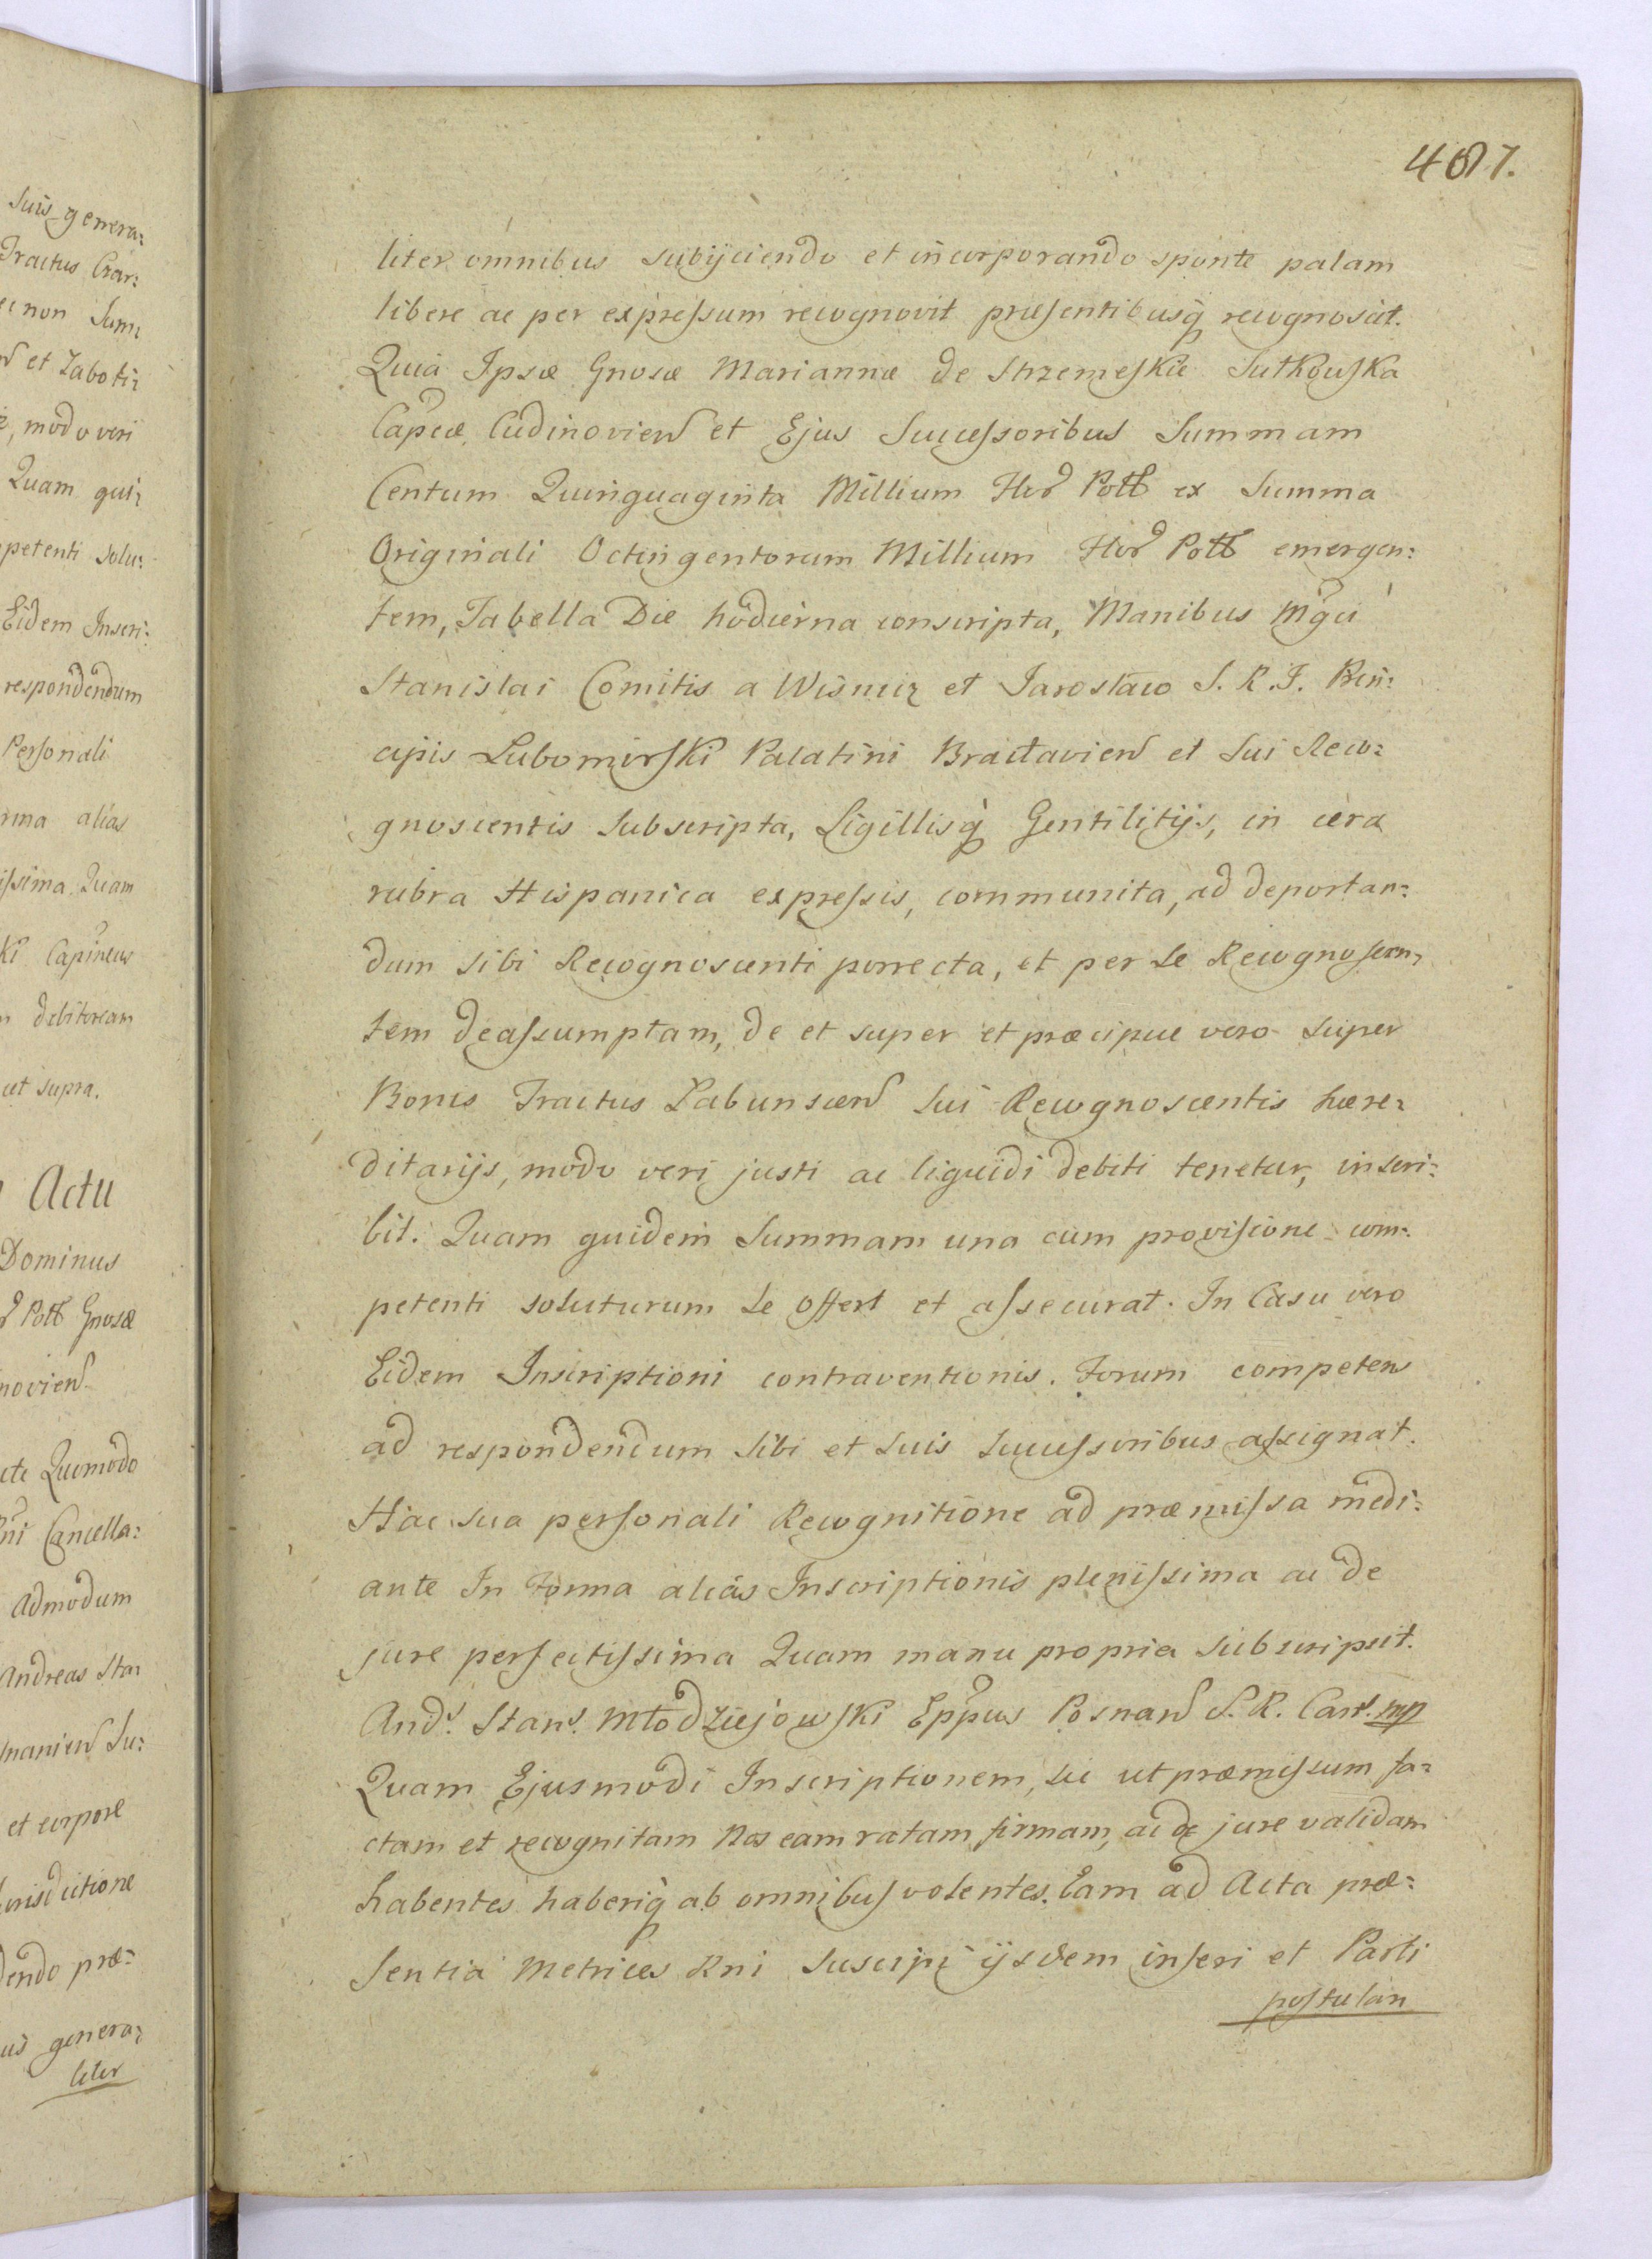 487.
liter omnibus subijciendo et incorporando sponte palam
libere ac per expressum recognovit præsentibusq recognoscit.
Quia Ipsæ Gnosæ Mariannæ de Strzemeskie Sutkowska
Capeæ Cudinovien et Ejus Successoribus Summam
Centum Quinquaginta Millium Flor Poll ex Summa
Originali Octingentorum Millium Flor Poll emergen:
tem, Tabella Die hodierna conscripta, Manibus Mgci
Stanislai Comitis a Wisnicz et Jarosław S. R. J. Prin:
cipis Lubomirski Palatini Bracłavien et sui Reco:
gnoscentis Subscripta, Sigillisq Gentilitijs, in cera
rubra Hispanica expressis, communita, ad deportan:
dum sibi Recognoscenti porrecta, et per se Recognoscen:
tem deassumptam, de et super et præcipue vero super
Bonis Tractus Labunscen sui Recognoscentis hære:
ditarijs, modo veri justi ac liquidi debiti tenetur, inscri:
bit. Quam quidem Summam una cum provisione com:
petenti soluturum se offert et assecurat. In Casu vero
Eidem Inscriptioni contraventionis. Forum competens
ad respondendum sibi et suis successoribus assignat.
Hac sua personali Recognitione ad præmissa medi:
ante In Forma alias Inscriptionis plenissima ac de
jure perfectissima Quam manu propria subscripsit.
Ands. Stans. Młodziejowski Eppus Posnan S. R. Canc. mp
Quam Ejusmodi Inscriptionem, sic ut præmissum fa:
ctam et recognitam Nos eam ratam firmam, ac de jure validam
habentes haberiq ab omnibus volentes. Eam ad Acta præ:
sentia Metrices Rni suscipi ijsdem inseri et Parti
postulan